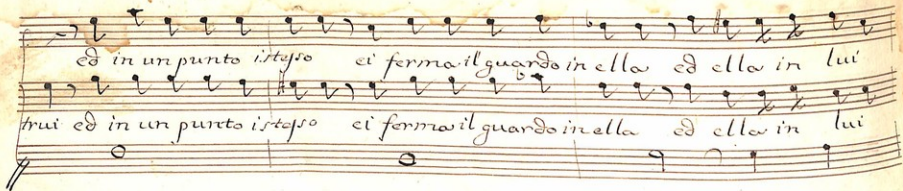 ed in un punto istesso ei ferma il guardo in ella ed ella in lui
trui ed in un punto istesso ei ferma il guardo in ella ed ella in lui